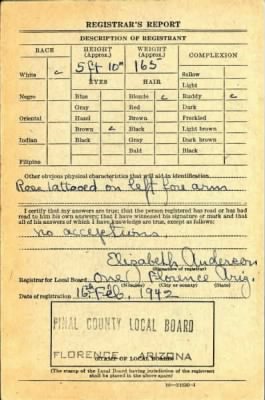 REGISTRAR'S REPORT
DESCRIPTION OF REGISTRANT
RACE HEIGHT (Approx.) WEIGHT (Approx.) COMPLEXION
5 ft 10" 165
White c Sallow
EYES HAIR Light
Negro Blue Blonde c Ruddy c
Gray Red Dark
Oriental Hazel Brown Freckled
Brown c Black Light brown
Indian Black Gray Dark brown
Bald Black
Filipino
Other obvious physical characteristics that will aid in identification
Rose tattooed on left fore arm
I certify that my answers are true; that the person registered has read or has had
read to him his own answers; that I have witnessed his signature or mark and that
all of his answers of which I have knowledge are true, except as follows:
no acceptions
Elizabeth Anderson
(Signature of registrar)
Registrar for Local Board One Florence Ariz.
(Number) (City or county) (State)
Date of registration 16th Feb, 1942
PINAL COUNTY LOCAL BOARD
FLORENCE, ARIZONA
(STAMP OF LOCAL BOARD)
(The stamp of the Local Board having jurisdiction of the registrant
shall be placed in the above space)